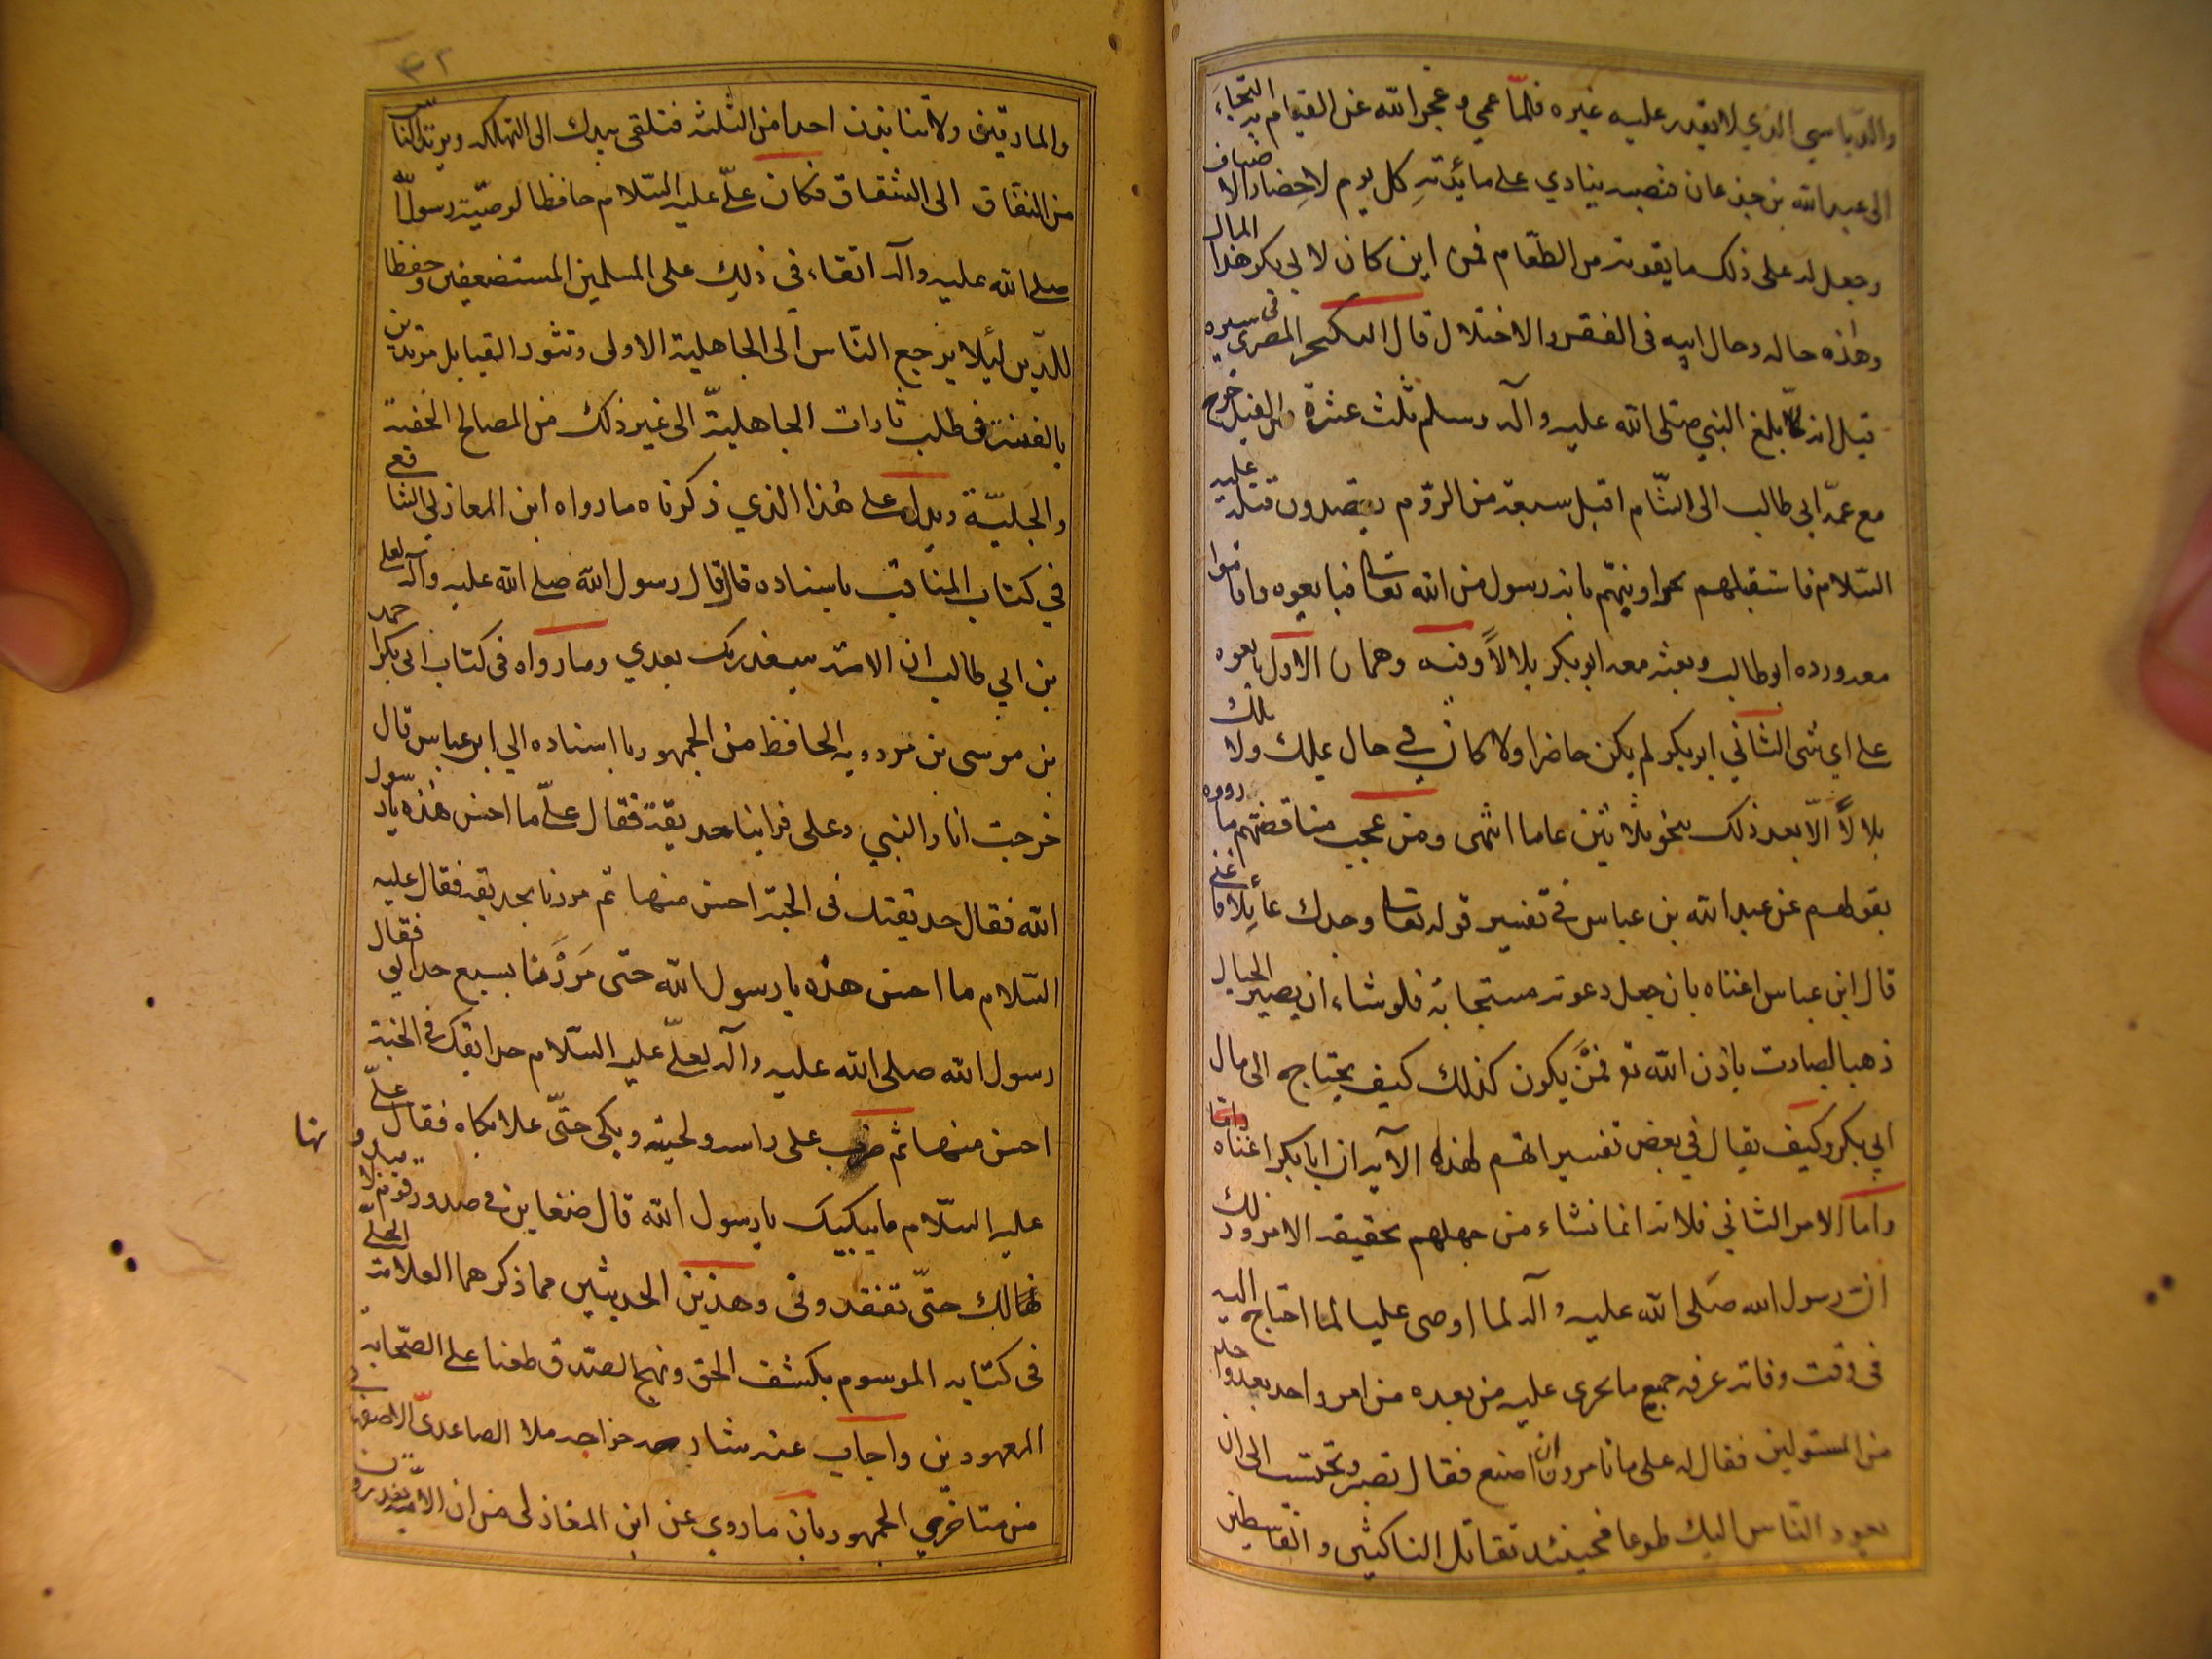 والدباسي الذي لا يقدر عليه غيره فلمّا عمي وعجز الله عن القيام به التجاء
الى عبد الله بن جذعان فنصبه ينادي على مائدته كل يوم لاحضار الاضياف
وجعل له على ذلك ما يقوته من الطعام فمن اين كان لابي بكر هذا المال
وهذه حاله وحال ابيه في الفقر والاختلال قال المصري في سيره
قيل انه لما بلغ النبي صلى الله عليه وآله وسلم ثلث عشرة من الفيل خرج
مع عمّه ابي طالب الى الشام اقبل سبعة من الروم يقصدون قتله عليه
السلام فاستقبلهم بحيرا ونبهم بانه رسول من الله تعالى فبايعوه واقاموا
معه ورده ابو طالب وبعث معه ابو بكر بلالاً وفيه وهمان الاول بايعوه
على اي شئ الثاني ابو بكر لم يكن حاضرا ولا كان في حال يملك ولا ملك
بلالاً الّا بعد ذلك بنحو ثلاثين عاما انتهى ومن عجب مناقضتهم ما رووه
بقولهم عن عبد الله بن عباس في تفسير قوله تعالى ووجدك عائلا فاغنى
قال ابن عباس اغناه بان جعل دعوته مستجابة فلو شاء ان يصير الجبال
ذهبا لصارت باذن الله تع فمَنْ يكون كذلك كيف يحتاج الى مال
ابي بكر وكيف يقال في بعض تفسيراتهم لهذه الآية ان ابا بكر اغناه
واما الامر الثاني فلانه انما نشاء من جهلهم بحقيقة الامر وذلك
ان رسول الله صلى الله عليه وآله لما اوصى عليا لما احتاج اليه
في وقت وفاته عرفه جميع ما يجرى عليه من بعده من امر واحد بعد واحد
من المستولين فقال له على ما تامرون ان اصنع فقال تصبر وتحتسب الى ان
يعود الناس اليك طوعا فحينئذ تقاتل الناكثين والقاسطين
۴۲
والمارقين ولا تنابذن احدا من الثلثة فتلقى بيدك الى التهلكه ويرتد الناس
من النفاق الى الشقاق فكان علّي عليه السّلام حافظا لوصيّة رسول الله
صلى الله عليه وآله ابقاء في ذلك على المسلمين المستضعفين وحفظا
للدّين لئلا يرجع النّاس الى الجاهلية الاولى وتثور القبايل مرتدين
بالفتنة في طلب ثارات الجاهليّة الى غير ذلك من المصالح الخفية
والجليّة ويدل على هذا الذي ذكرناه ما رواه ابن المغازلي الشافعي
في كتاب المناقب باسناده قال قال رسول الله صلى الله عليه وآله لعلي
بن ابي طالب ان الامة ستغدر بك بعدي وما رواه في كتاب ابي بكر احمد
بن موسى بن مردويه الحافظ من الجمهور باسناده الى ابن عباس قال
خرجت انا والنبي وعلى فراينا حديقة فقال علّي ما احسن هذه يا رسول
الله فقال حديقتك في الجنة احسن منها ثم مررنا بحديقة فقال عليه
السّلام ما احسن هذه يا رسول الله حتى مَرَرْنا بسبع حدايق فقال
رسول الله صلى الله عليه وآله لعلّي عليه السّلام حدائقك في الجنة
احسن منها ثم ضرب على راسه ولحيته وبكى حتّى علا بكاه فقال علّي
عليه السّلام ما يبكيك يا رسول الله قال ضغاين في صدور قوم لا يبدونها
لك حتّى تفقدونى وهذين الحديثين مما ذكرهما العلامة الحلّي
في كتابه الموسوم بكشف الحق ونهج الصدق طعنا على الصّحابة
المعهودين واجاب عنه خواجه ملا الصاعديّ الاصفهاني
من متاخّري الجمهور بان ما روي عن ابن المغازلى من ان الامّة يغدرون